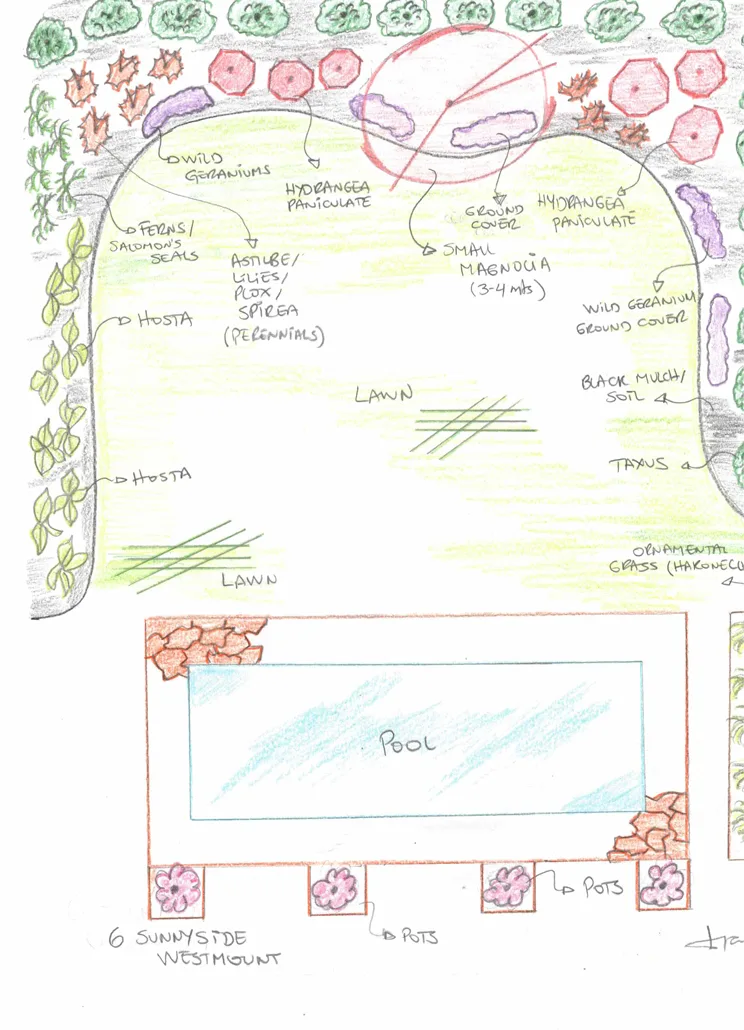 WILD
GERANIUMS
HYDRANGEA
PANICULATE
GROUND
COVER
HYDRANGEA
PANICULATE
FERNS/
SALOMON'S
SEALS
ASTILBE/
LILIES/
PLOX/
SPIREA
(PERENNIALS)
SMALL
MAGNOLIA
(3-4 mts)
HOSTA
WILD GERANIUM/
GROUND COVER
LAWN
BLACK MULCH/
SOIL
TAXUS
HOSTA
ORNAMENTAL
GRASS (HAKONECL
LAWN
POOL
POTS
POTS
6 SUNNYSIDE
WESTMOUNT